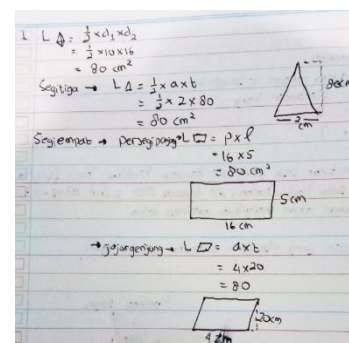 1 L = 1/2 x d₁ x d₂
= 1/2 x 10 x 16
= 80 cm²
Segitiga → L △ = 1/2 x a x t
= 1/2 x 2 x 80
= 80 cm²
80cm
2
cm
Segiempat → persegi panjang → L ▭ = p x l
= 16 x 5
= 80 cm²
5 cm
16 cm
→ jajargenjang → L ▱ = a x t
= 4 x 20
= 80
20cm
4 cm